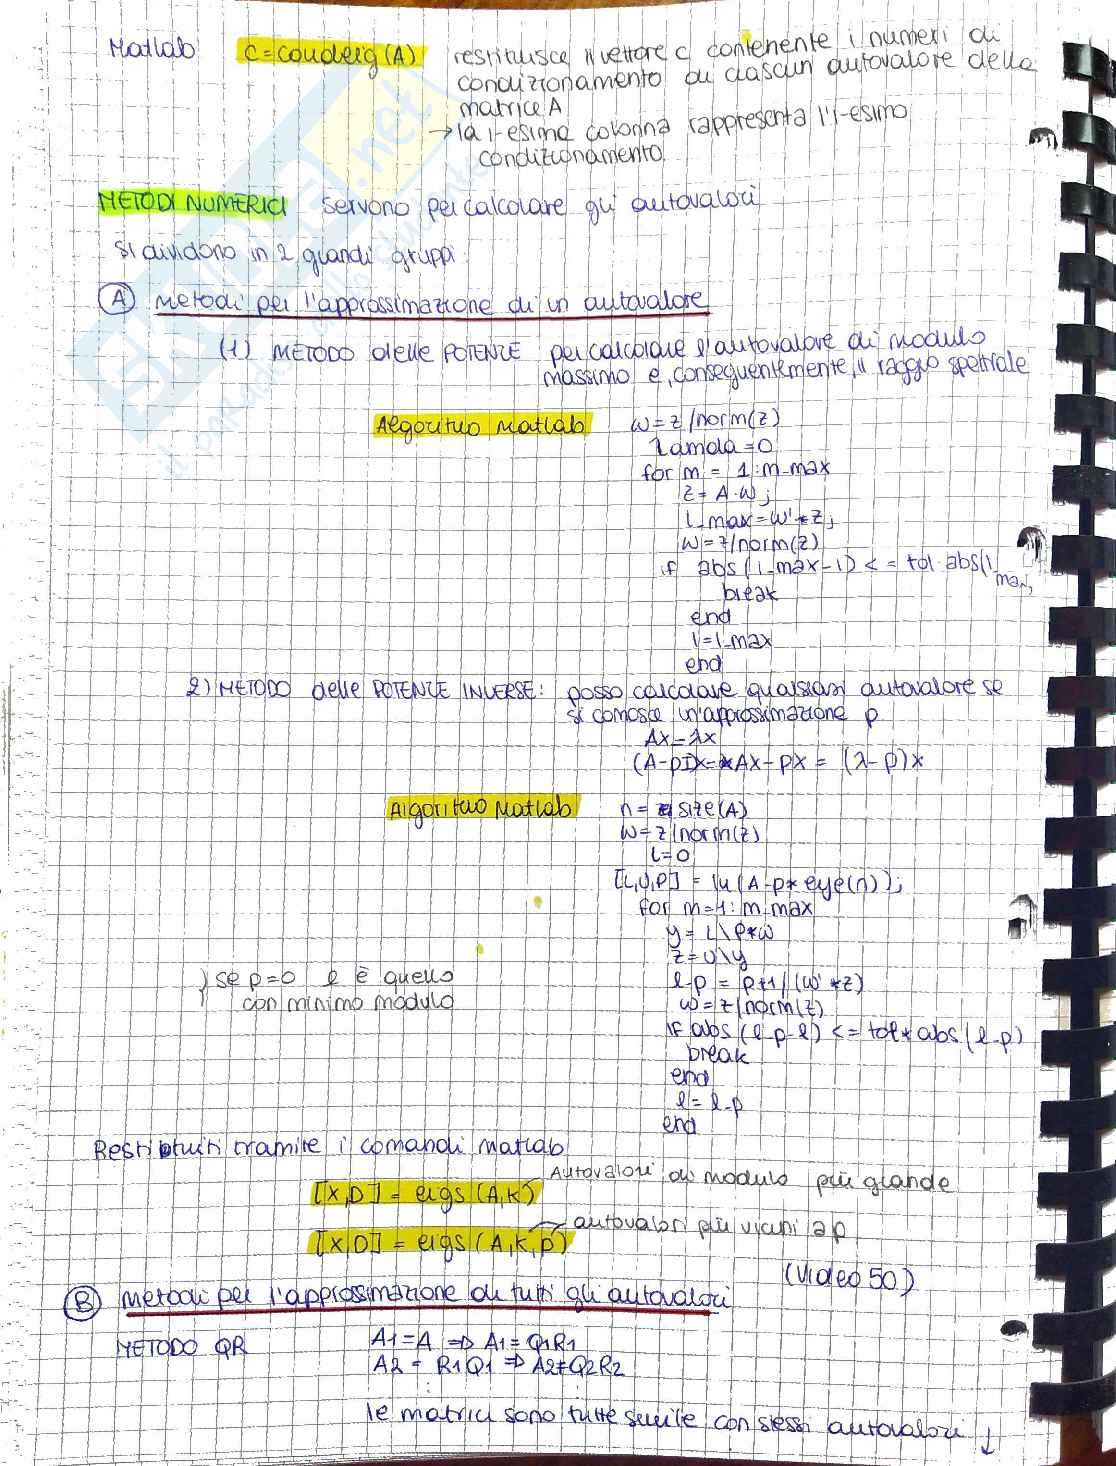 Matlab C = condeig(A) restituisce il vettore c contenente i numeri di
condizionamento di ciascun autovalore della
matrice A
→ la i-esima colonna rappresenta l'i-esimo
condizionamento
METODI NUMERICI servono per calcolare gli autovalori
si dividono in 2 grandi gruppi
A metodi per l'approssimazione di un autovalore
(1) METODO delle POTENZE per calcolare l'autovalore di modulo
massimo e, conseguentemente, il raggio spettrale
Algoritmo Matlab w = z/norm(z)
lamda = 0
for m = 1:m_max
z = A·w;
l_max = w'*z;
w = z/norm(z)
if abs(l_max-l) <= tol·abs(l_max)
break
end
l = l_max
end
2) METODO delle POTENZE INVERSE: posso calcolare qualsiasi autovalore se
si conosce un'approssimazione p
Ax = λx
(A-pI)x = Ax-px = (λ-p)x
Algoritmo Matlab n = size(A)
w = z/norm(z)
l = 0
[L,U,P] = lu(A-p*eye(n));
for m=1:m_max
y = L\P*w
z = U\y
se p=0 l è quello l_p = p+1/(w'*z)
con minimo modulo w = z/norm(z)
if abs(l_p-l) <= tol*abs(l_p)
break
end
l = l_p
end
Restituiti tramite i comandi matlab
[X,D] = eigs(A,k) autovalori di modulo più grande
[X,D] = eigs(A,k,p) autovalori più vicini a p
(Video 50)
B metodi per l'approssimazione di tutti gli autovalori
METODO QR A1=A ⇒ A1=Q1R1
A2 = R1Q1 ⇒ A2=Q2R2
le matrici sono tutte simile con stessi autovalori ↓
SKUOLA.net